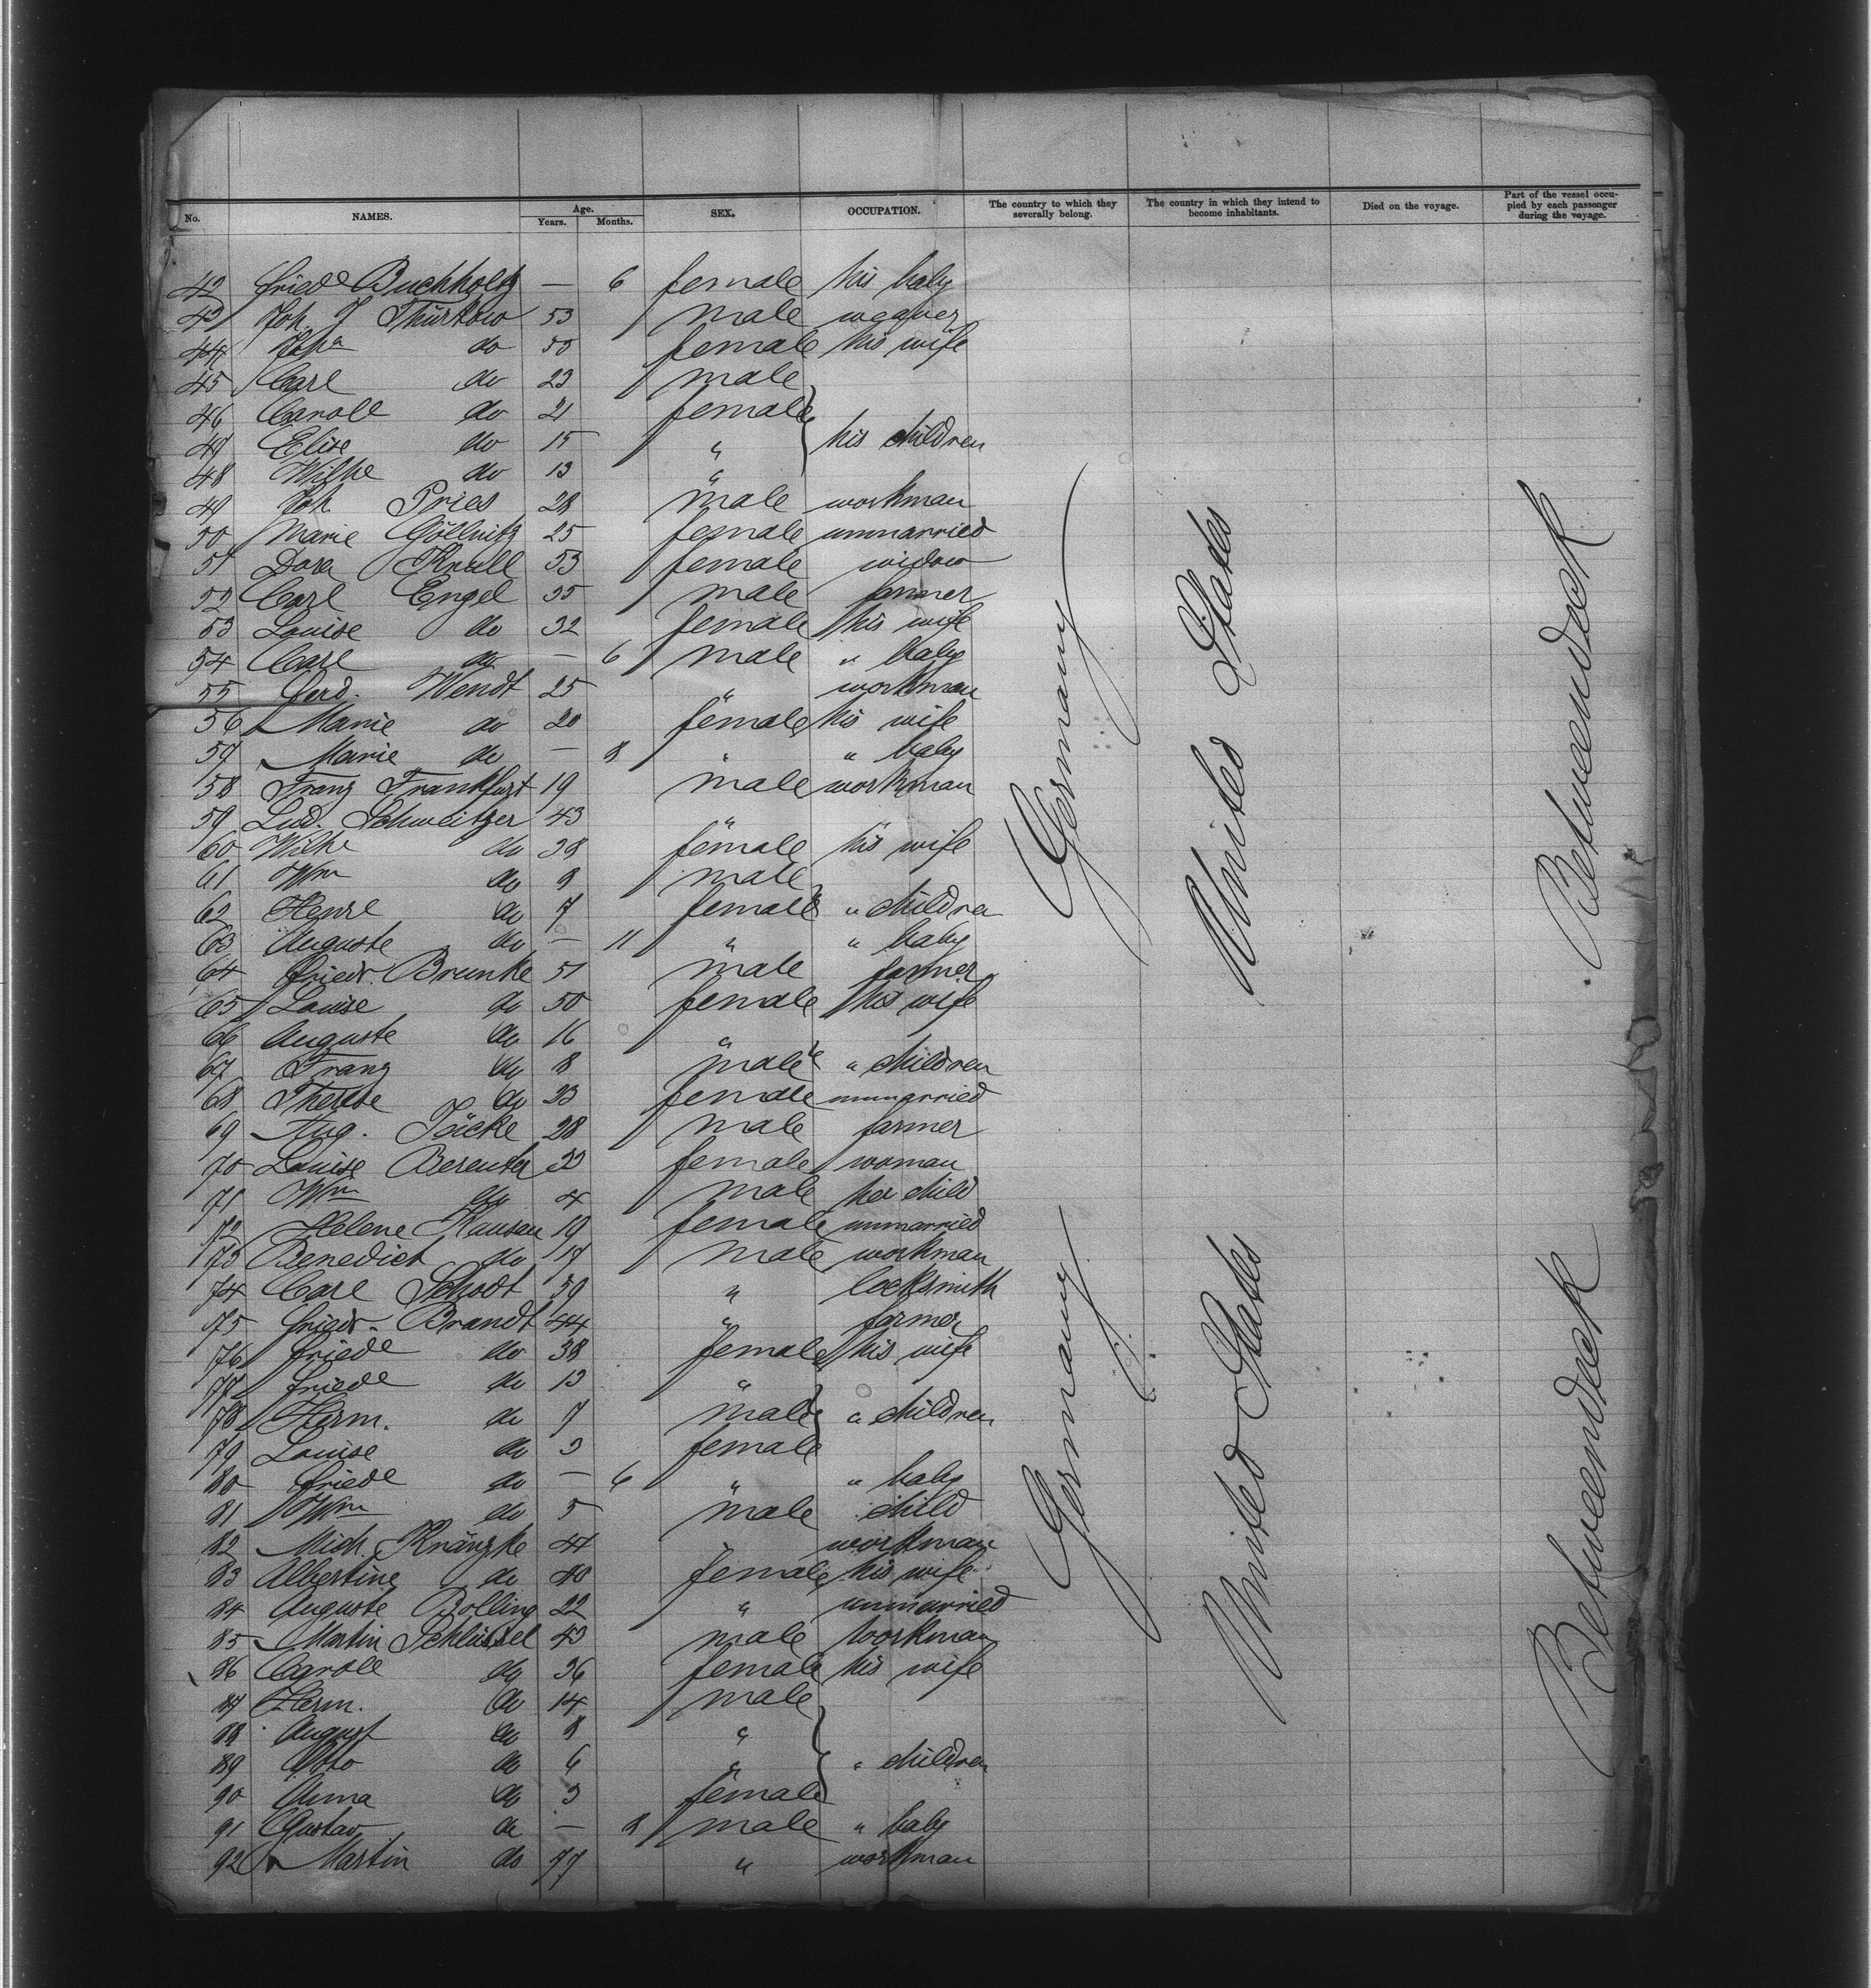 No. NAMES. Age. Years. Months. SEX. OCCUPATION. The country to which they severally belong. The country in which they intend to become inhabitants. Died on the voyage. Part of the vessel occupied by each passenger during the voyage.
42 Friede Buchholtz — 6 female his baby
43 Joh. J Thürkow 53 male weaver
44 Joha do 50 female his wife
45 Carl do 23 male
46 Caroll do 21 female
47 Elise do 15 " his children
48 Wilhe do 13 "
49 Joh Pries 28 male workman
50 Marie Göllnitz 25 female unmarried
51 Dora Krull 53 female widow
52 Carl Engel 35 male farmer
53 Louise do 32 female his wife
54 Carl do — 6 male " baby
55 Ferd. Wendt 25 " workman
56 Marie do 20 female his wife
57 Marie do — 8 " " baby
58 Franz Frankfurt 19 male workman
59 Lud. Schweitzer 43 " "
60 Wilhe do 38 female his wife
61 Wm do 9 male
62 Henrl do 7 female " children
63 Auguste do — 11 " " baby
64 Friedr. Brunke 51 male farmer
65 Louise do 50 female his wife
66 Auguste do 16 "
67 Franz do 8 male " children
68 Therese do 23 female unmarried
69 Aug. Jäcke 28 male farmer
70 Louise Berenter 33 female woman
71 Wm do 4 male her child
72 Helene Hansen 19 female unmarried
73 Benedict do 17 male workman
74 Carl Schodt 39 " locksmith
75 Friedr. Brandt 44 " farmer
76 Friede do 38 female his wife
77 Friede do 13 "
78 Herm. do 7 male " children
79 Louise do 3 female
80 Friede do — 6 " " baby
81 Wm do 5 male child
82 Mich. Knäzke 44 " workman
83 Albertine do 40 female his wife
84 Auguste Bolling 22 " unmarried
85 Martin Schlüssel 43 male workman
86 Caroll do 36 female his wife
87 Herm. do 14 male
88 August do 8 "
89 Otto do 6 " " children
90 Anna do 3 female
91 Gustav do — 8 male " baby
92 Martin do 77 " workman
Germany
United States
Betweendeck
Germany
United States
Betweendeck